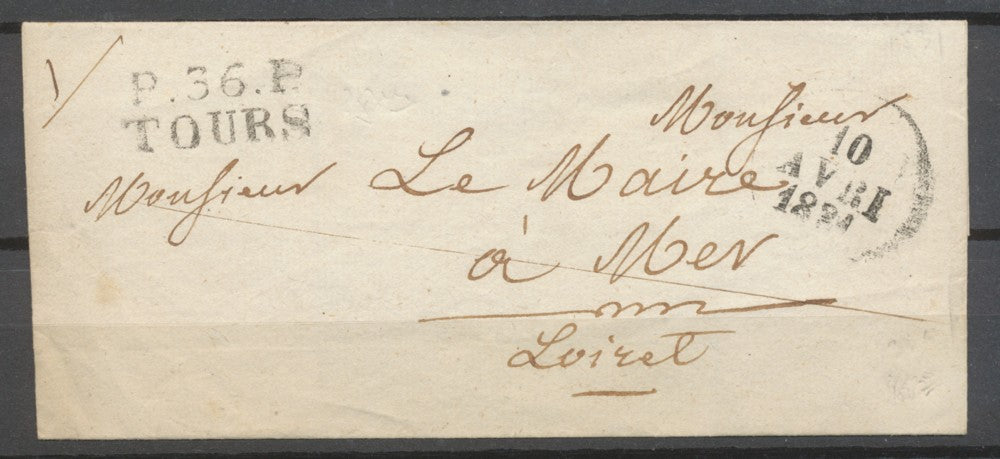 P.36.P.
TOURS
Monsieur
10
AVRI
Monsieur Le Maire
à Mer
Loiret